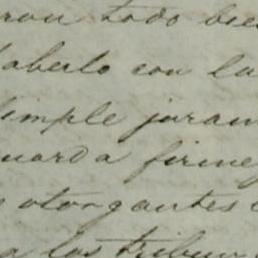 ron todo bie
haberlo con la
simple juram
guarda firme
s otorgantes
a los tribun